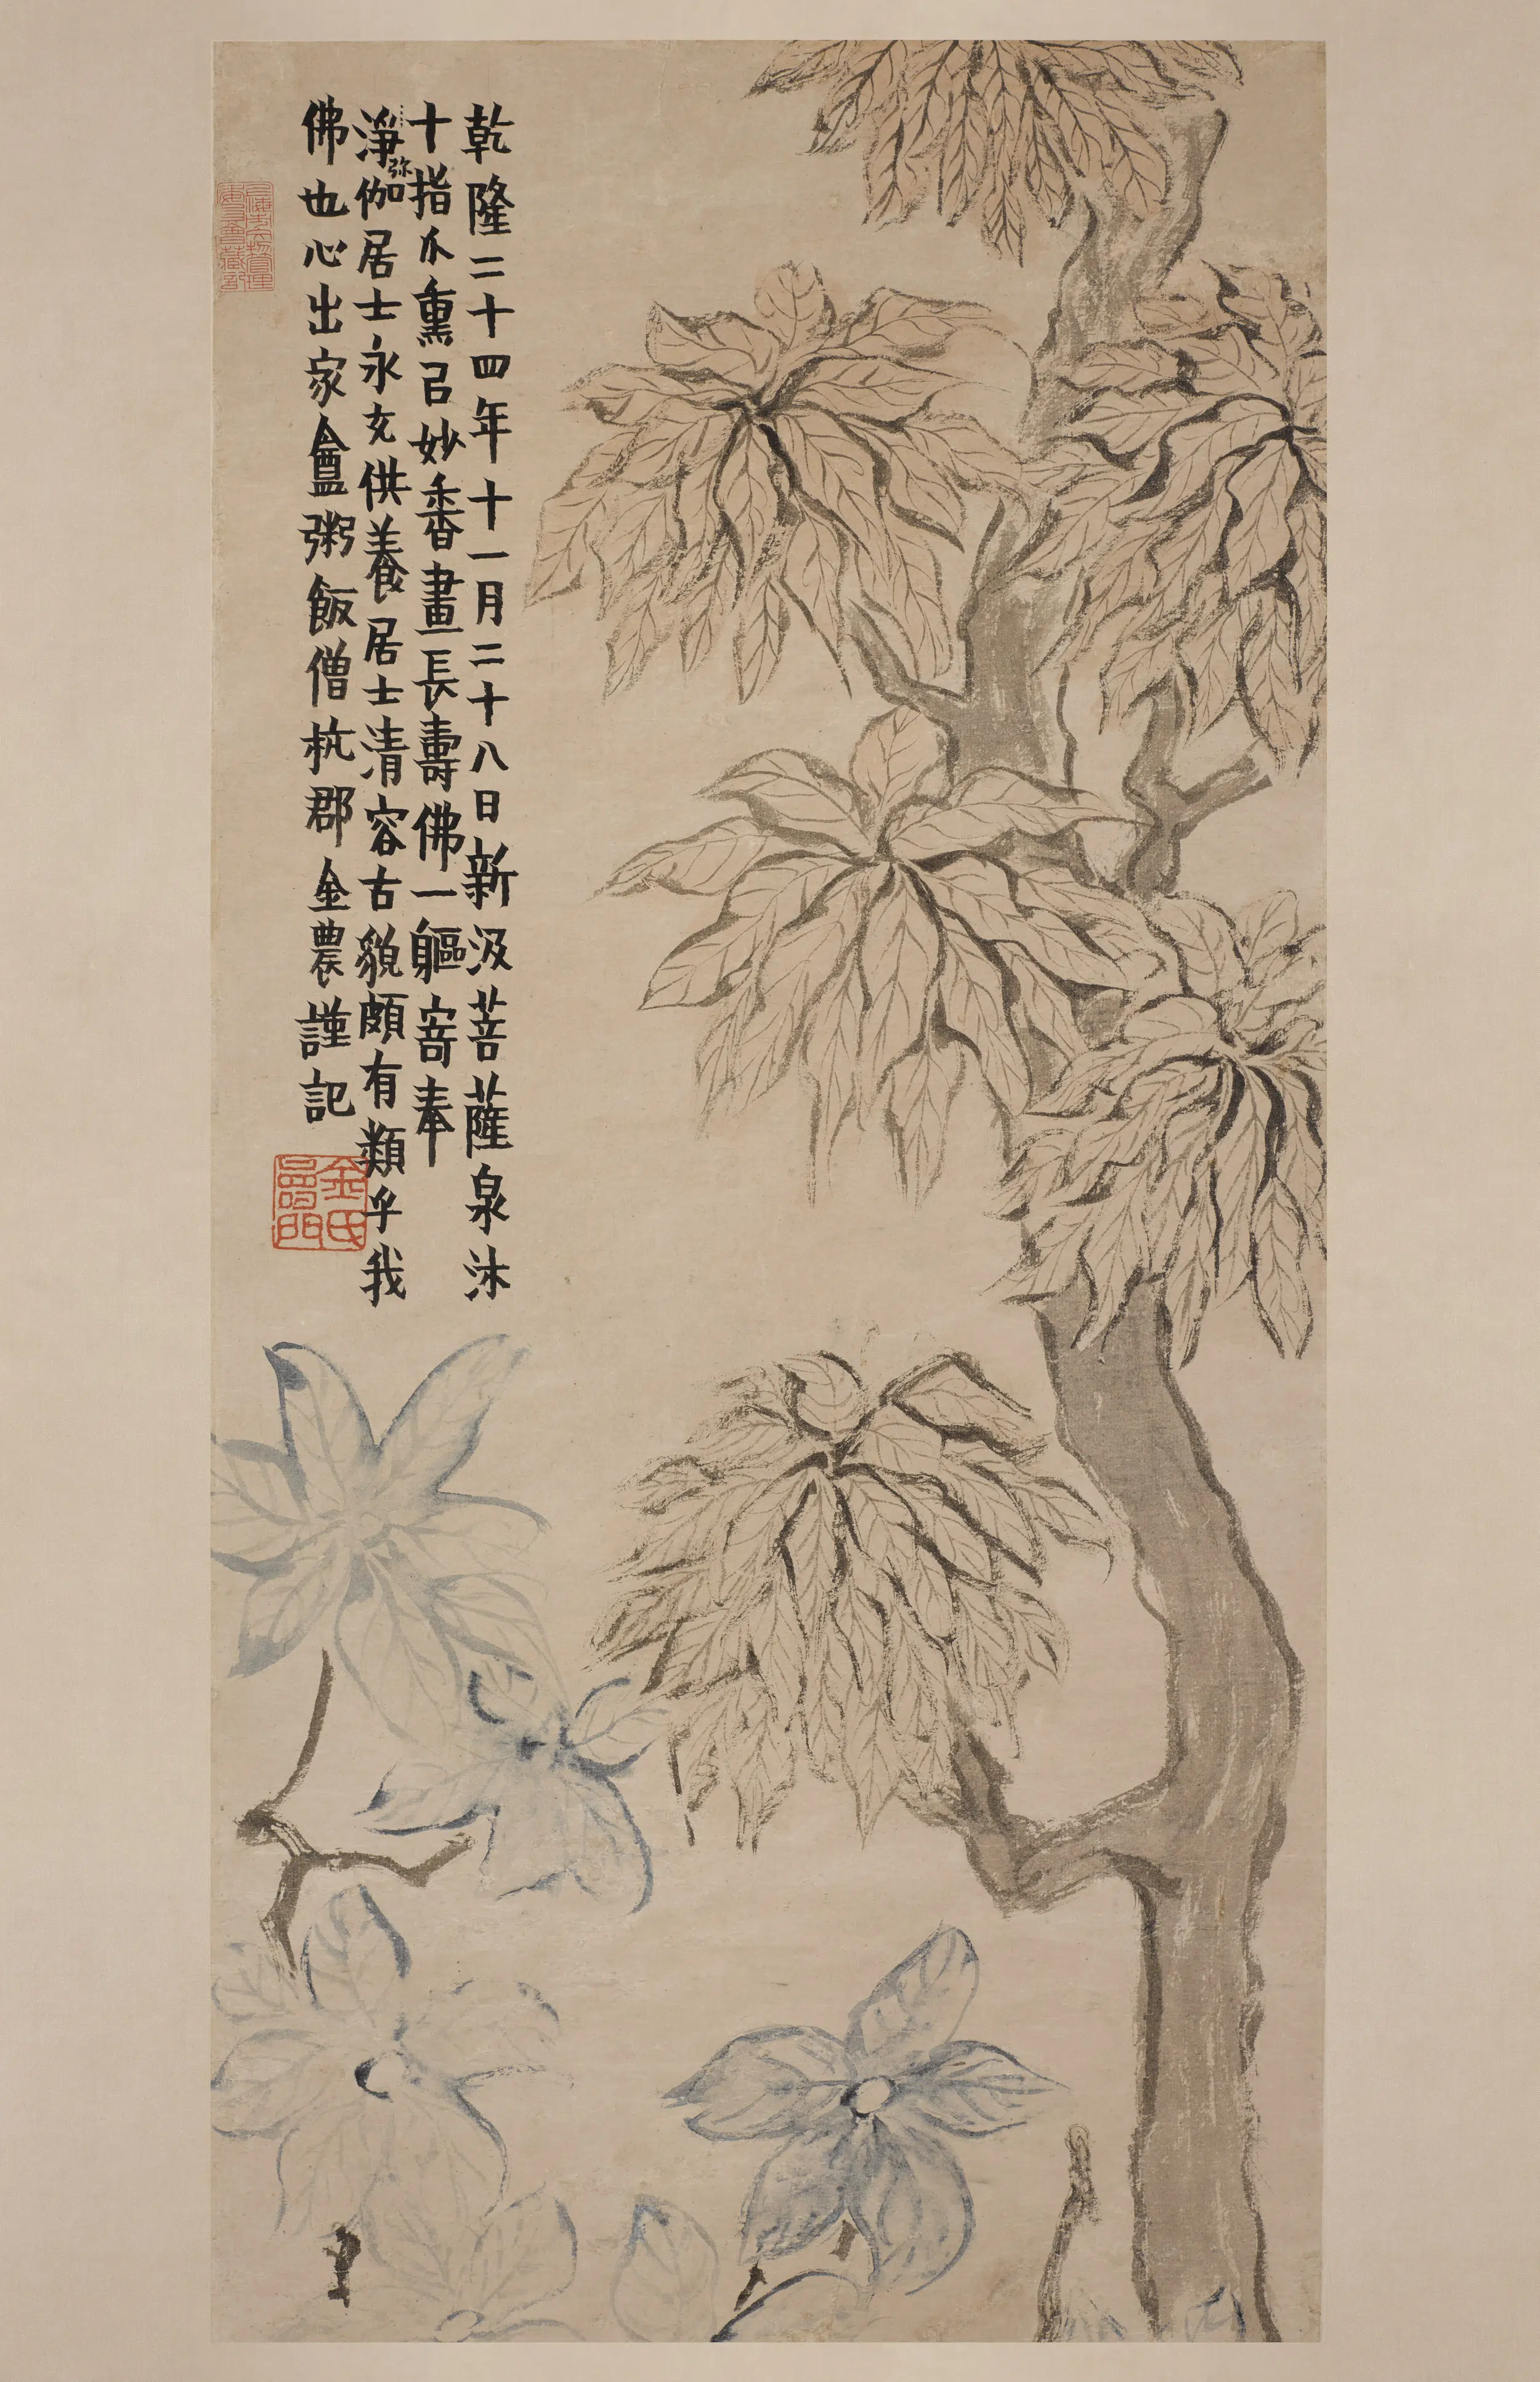 乾隆二十四年十一月二十八日新汲菩薩泉沐
十指爪熏㠯妙香畫長壽佛一軀寄奉
淨弥伽居士永充供養居士清容古貌頗有類乎我
佛也心出家盦粥飯僧杭郡金農謹記
金氏